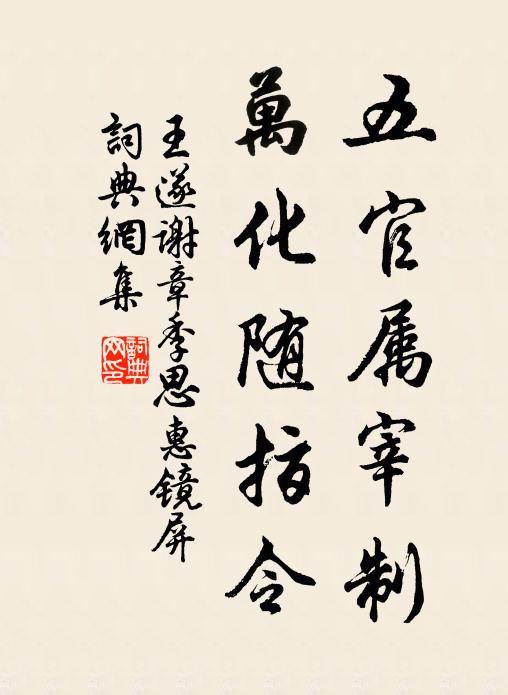 五官属宰制
萬化随指令
王遂謝章季思惠鏡屏
詞典網集
詞典
网印